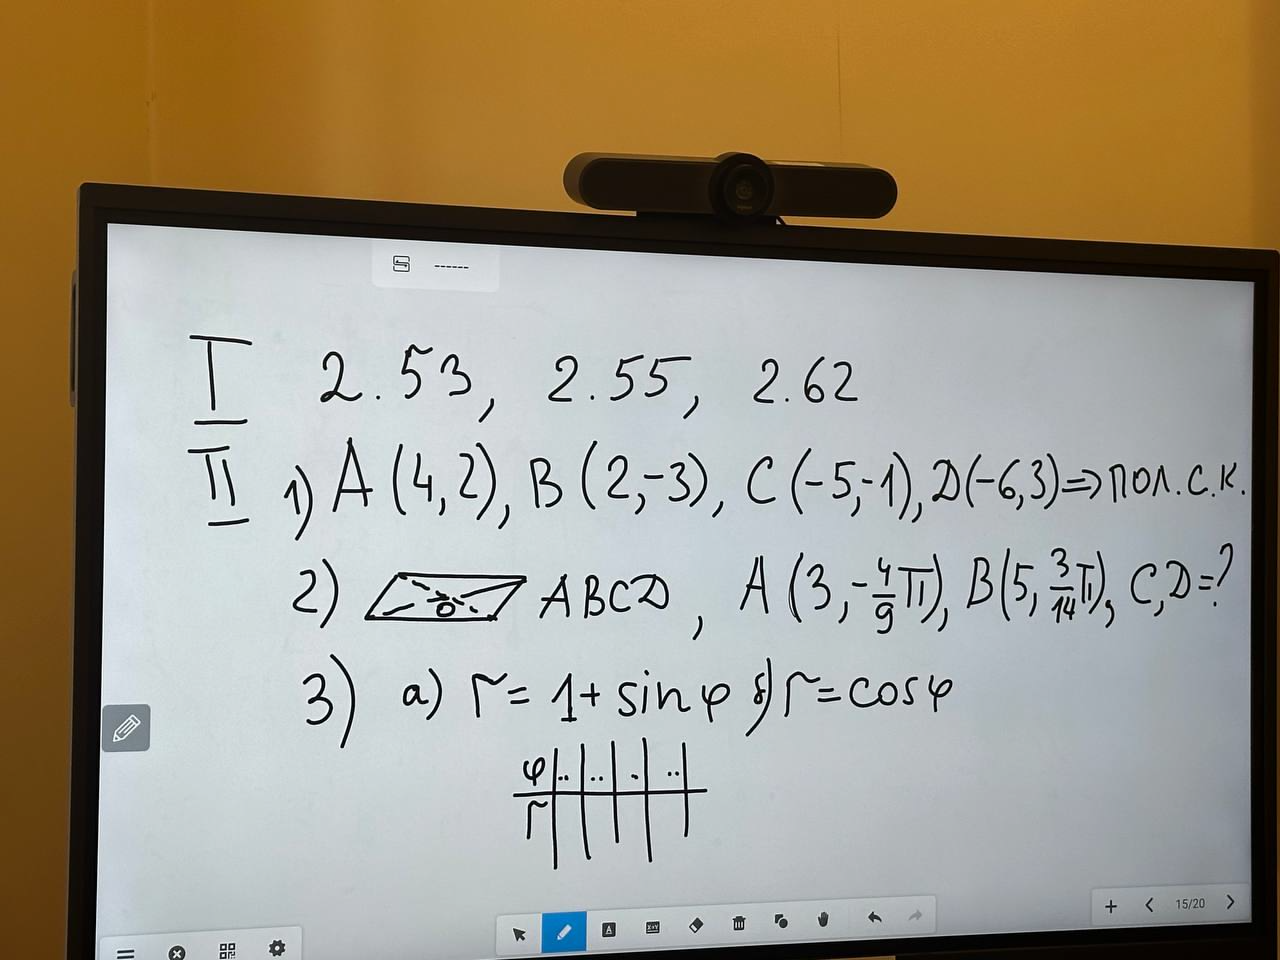 ------
I 2.53, 2.55, 2.62
II 1) A (4,2), B (2,-3), C (-5,-1), D(-6,3)=> ПОЛ.С.К.
2) O ABCD, A (3,-4/9 π), B(5, 3/14 π), C,D=?
3) a) r= 1+ sin φ б) r=cosφ
φ .. .. . ..
r
15/20